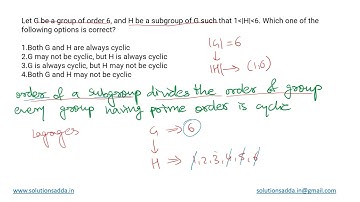 Let G be a group of order 6, and H be a subgroup of G such that 1<|H|<6. Which one of the
following options is correct?
1.Both G and H are always cyclic
2.G may not be cyclic, but H is always cyclic
3.G is always cyclic, but H may not be cyclic
4.Both G and H may not be cyclic
|G| = 6
↓
|H| → (1,6)
order of a subgroup divides the order of group
every group having prime order is cyclic
G ⇒ 6
↓
H ⇒ 1,2,3,4,5,6
www.solutionsadda.in
solutionsadda.in@gmail.com